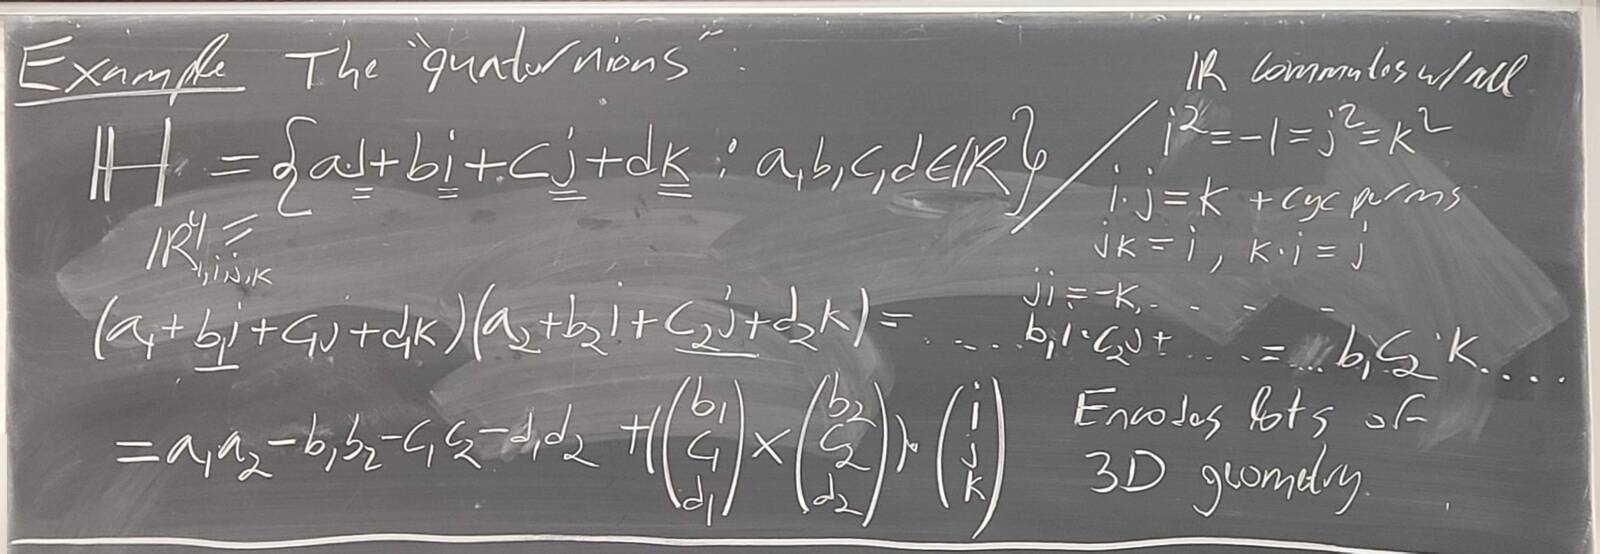 Example The "quaternions":
ℍ = {a1+bi+cj+dk : a,b,c,d∈ℝ}
ℝ⁴ =
1,i,j,k
ℝ commutes w/ all
i² = -1 = j² = k²
i·j = k + cyc perms
jk = i, k·i = j
ji = -k, - - -
(a₁+b₁i+c₁j+d₁k)(a₂+b₂i+c₂j+d₂k) = .... b₁i·c₂j + .... = ... b₁c₂·k....
= a₁a₂ - b₁b₂ - c₁c₂ - d₁d₂ + ((b₁ c₁ d₁) × (b₂ c₂ d₂)) · (i j k)
Encodes lots of
3D geometry.